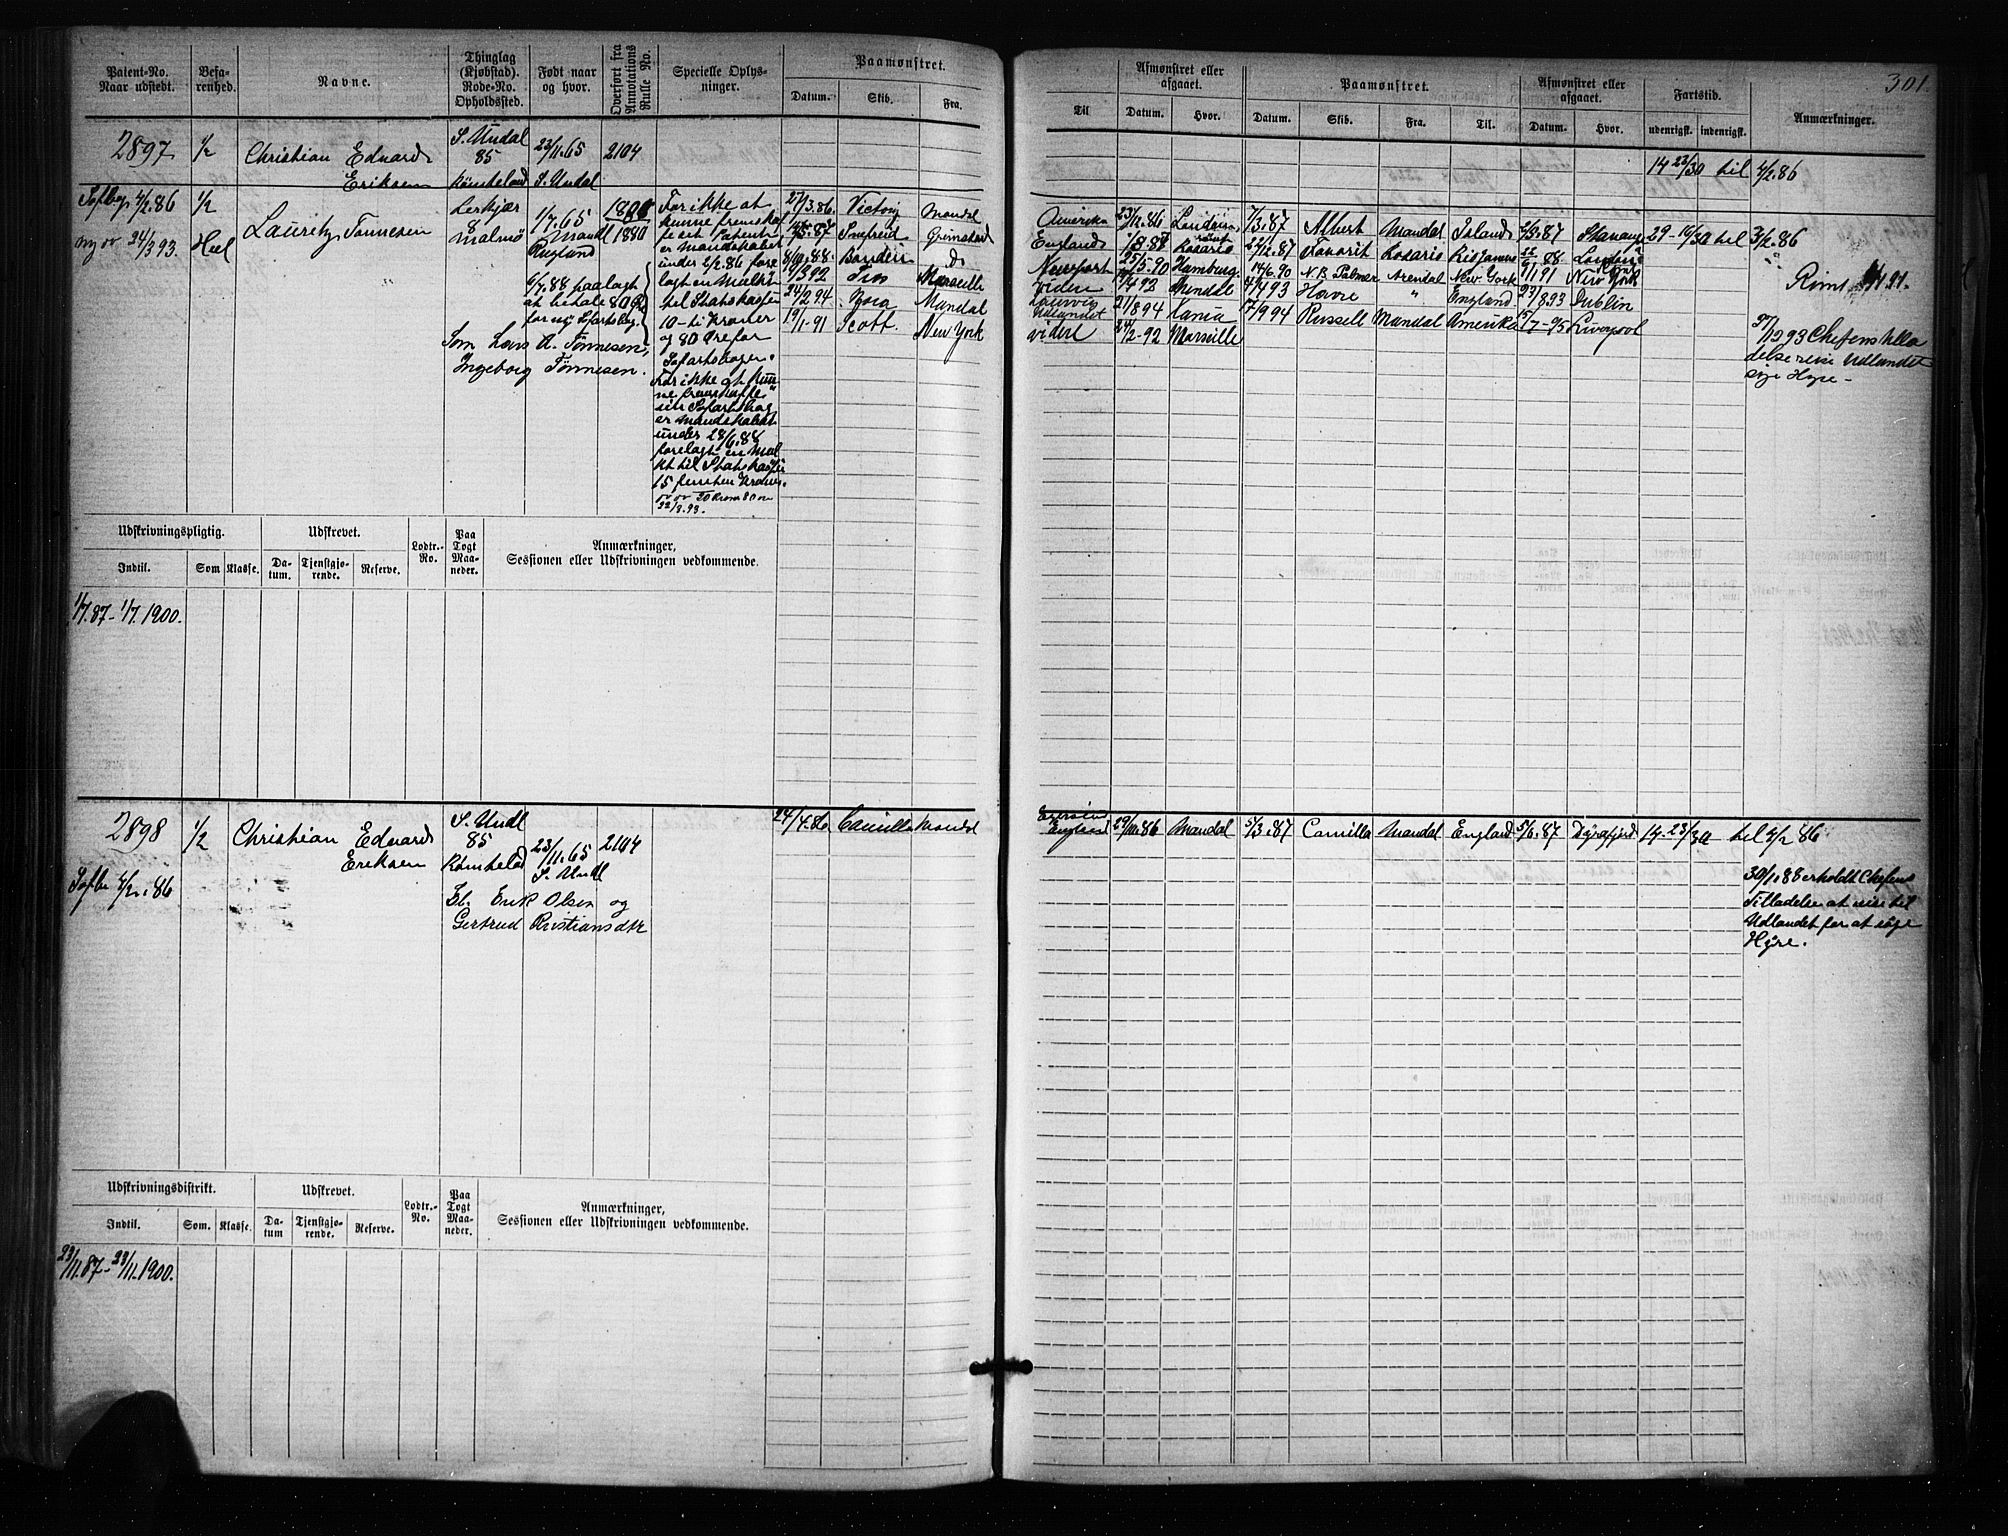 301.
Patent-No. Naar udstedt.
Befarenhed.
Navne.
Thinglag (Kjøbstad). Rode-No. Opholdssted.
Født naar og hvor.
Overført fra Annotations Rulle No.
Specielle Oplysninger.
Paamønstret.
Datum. Skib. Fra.
Til
Afmønstret eller afgaaet.
Datum. Hvor.
Paamønstret.
Datum. Skib. Fra. Til.
Afmønstret eller afgaaet.
Datum. Hvor.
Fartstid.
udenrigsk. indenrigsk.
Anmærkninger.
2897 1/2 Christian Edvard S. Undal 23/11.65 2104
85
Eriksen S. Undal
14 23/30 til 4/2.86
4/2.86 1/2 Lauritz Tønnesen Malmø 1/7.65 Mandl 1880
ny 24/3 93. Heel
England
6/7.88 paalagt
at betale 80 Ø
for ny
Som Lars A. Tønnesen,
Ingeborg Tønnesen.
For ikke at
kunne fremska
er Mandskabet
under 2/2.86 fore
lagt en Mulkt
til Statskassen
10 - ti Kroner
og 80 Øre for
Søfartsbogen.
For ikke at kun
ne fremskaffe
sin Søfartsbog
er Mandskabet
under 28/6.88
forelagt en Mul
kt til Statskassen
15 femten Kroner.
27/3.86. Victoria Mandal
Amerika 23/12.86 London 7/3.87 Albert Mandal Island 6/3.87 Stavanger 29-19/30 til 3/2.86
Grimstad
England 1/8.87 Rosario 24/12.87 Favorit Rosario Rio Janeiro
8/10.88. do
Newport 25/5-90 Hamburg 14/6.90 N.B. Palmer Arendal New York 1/1 91 New York
19/3 92 Marseille
videre 19/4 92 Mandal 4/4 93 Havre " England 23/8 93 Dublin
24/2 94 Mandal
Udlandet 21/8 94 17/9 94 Russell Mandal Amerika 15/7-95 Liverpool
19/1-91 Scott. New York
videre 24/2-92 Marseille
Rømt
Chefens Tilla
delse reise Udlandet
søge Hyre -
Udskrivningspligtig. Udskrevet. Lodtr.-No. Paa Togt Maaneder. Anmærkninger, Sessionen eller Udskrivningen vedkommende.
Indtil. Som Klasse. Datum. Tjenstgjørende. Reserve.
1/7.87 - 1/7.1900.
2898 1/2 Christian Edvard S. Undl
85 23/11.65 2104
Eriksen S. Undl
4/2.86
El. Erik Olsen og
Gertrud Kristiansdtr
24/4.86 Camilla Mandal
England 29/10.86 Mandal 5/3.87 Camilla Mandal England 5/6.87 Dyrafjord 14-23/30 til 4/2 86
30/1.88 erholdt Chefens
Tilladelse at reise til
Udlandet for at søge
Hyre.
Udskrivningsdistrikt. Udskrevet. Lodtr.-No. Paa Togt Maaneder. Anmærkninger, Sessionen eller Udskrivningen vedkommende.
Indtil. Som. Klasse. Datum Tjenstgjørende. Reserve.
23/11.87 - 23/11.1900.